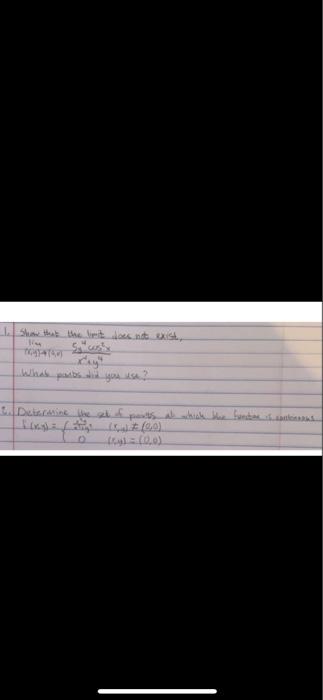 1. Show that the limit does not exist,
lim (x,y)→(0,0) 5y⁴ cos²x / x⁴+y⁴
What paths did you use?
2. Determine the set of points at which the function is continuous
f(x,y) = { (x,y) ≠ (0,0)
0 (x,y) = (0,0)